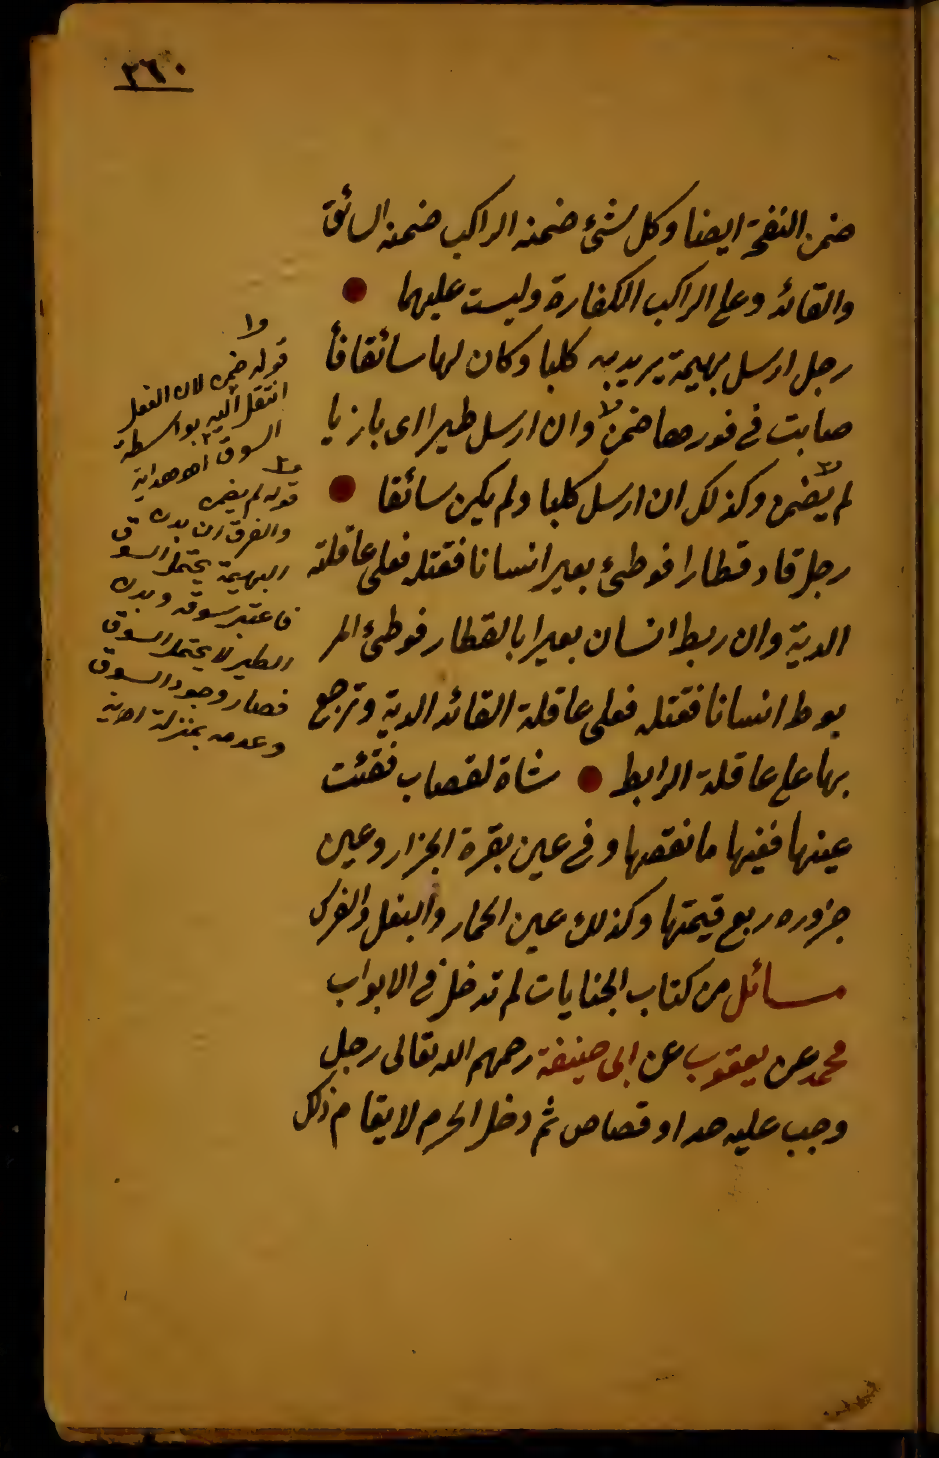 ٣٦٠
ضمن النفحة ايضا وكل شئ ضمنه الراكب ضمنه السائق
والقائد وعلى الراكب الكفارة وليست عليهما
رجل ارسل بهيمة يريد به كلبا وكان لها سائقا فأ
صابت في فورها ضمن وان ارسل طيرا اى بازيا
لم يضمن وكذلك ان ارسل كلبا ولم يكن سائقا
رجل قاد قطارا فوطئ بعير انسانا فقتله فعلى عاقلته
الدية وان ربط انسان بعيرا بالقطار فوطئ المر
بوط انسانا فقتله فعلى عاقلة القائد الدية وترجع
بها على عاقلة الرابط شاة لقصاب فقئت
عينها ففيها ما نقصها وفي عين بقرة الجزار وعين
جزوره ربع قيمتها وكذلك عين الحمار والبغل والفرس
مسائل من كتاب الجنايات لم تدخل في الابواب
محمد عن يعقوب عن ابى حنيفة رحمهم الله تعالى رجل
وجب عليه حد او قصاص ثم دخل الحرم لا يقام ذلك
١
قوله ضمن لان الفعل
انتقل اليه بواسطة
السوق اهـ هداية
٢
قوله لم يضمن
والفرق ان بدن
البهيمة يحتمل السوق
فاعتبر سوقه وبدن
الطير لا يحتمل السوق
فصار وجود السوق
وعدمه بمنزلة اهـ